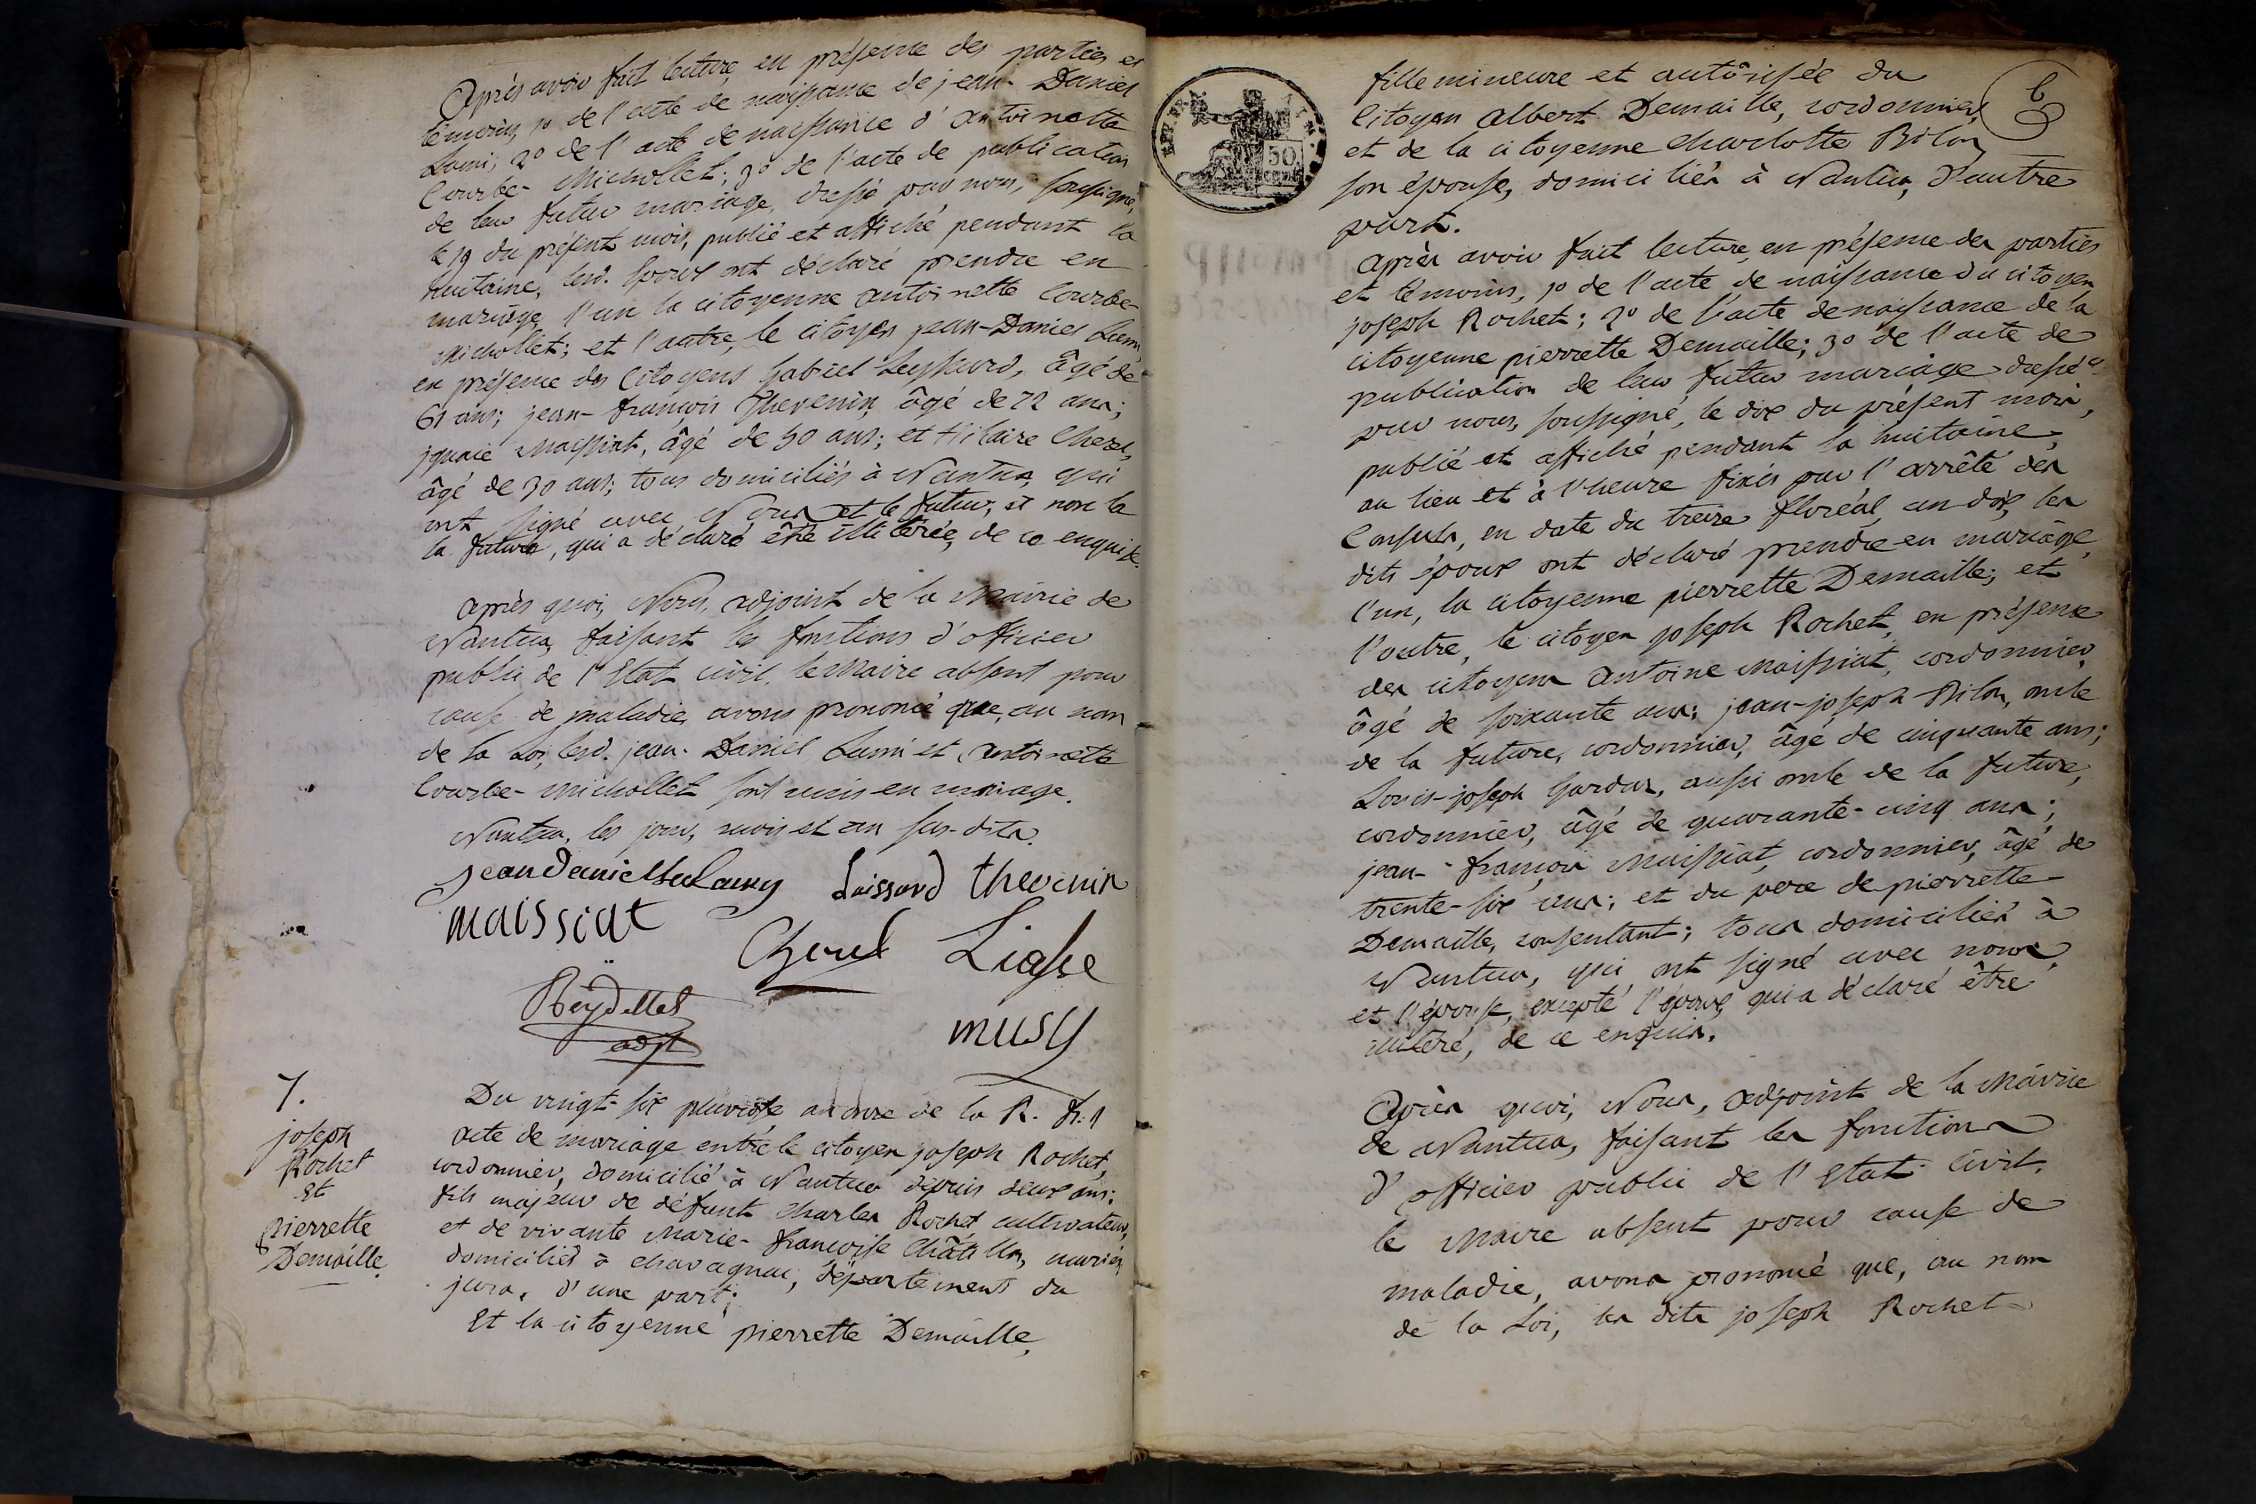 Après avoir fait lecture, en présence des parties et
témoins, 1o de l'acte de naissance de jean-Daniel
Lumi; 2o de l'acte de naissance d'antoinette
Courbe-Michollet; 3o de l'acte de publication
de leur futur mariage, dressé par nous, soussigné,
le 19 du présent mois, publié et affiché pendant la
huitaine, lesd. époux ont déclaré prendre en
mariage, l'un la citoyenne antoinette Courbe-
Michollet; et l'autre, le citoyen jean-Daniel Lumi,
en présence des Citoyens gabriel Leyssard, âgé de
61 ans; jean-françois Thevenin, âgé de 72 ans;
ignace Maissiat, âgé de 50 ans; et hilaire Cherel,
âgé de 30 ans; tous domiciliés à Nantua, qui
ont signé avec Nous et le futur, et non la
la future, qui a déclaré être illitérée, de ce enquise.
après quoi, Nous, adjoint de la Mairie de
Nantua, faisant les fonctions d'officier
public de l'Etat civil, le Maire absent pour
cause de maladie, avons prononcé que, au nom
de la Loi, lesd. jean-Daniel Lumi et antoinette
Courbe-Michollet sont unis en mariage.
Nantua, les jour, mois et an sus-dits.
jean daniel Laissard thevenin
maissiat
Cherel Liasse
Reydellet
adjt
musy
7.
joseph
Rochet
Et
pierrette
Demaille.
Du vingt-six pluviose an onze de la R. fr.
acte de mariage entre le citoyen joseph Rochet,
cordonnier, domicilié à Nantua depuis deux ans;
fils majeur de défunt Charles Rochet cultivateur,
et de vivante Marie-françoise Châtillon, mariés,
domiciliés à chavagnac, département du
jura, d'une part;
Et la citoyenne pierrette Demaille,
50
fille mineure et autorisée du
Citoyen albert Demaille, cordonnier,
et de la citoyenne Charlotte Bilon
son épouse, domiciliés à Nantua, d'autre
part.
après avoir fait lecture, en présence des parties
et témoins, 1o de l'acte de naissance du citoyen
joseph Rochet; 2o de l'acte de naissance de la
citoyenne pierrette Demaille; 3o de l'acte de
publication de leur futur mariage, dressé
par nous, soussigné, le dix du présent mois,
publié et affiché pendant la huitaine,
au lieu et à l'heure fixés par l'arrêté des
Consuls, en date du treize floréal, an dix, les
dits époux ont déclaré prendre en mariage,
l'un, la citoyenne pierrette Demaille; et
l'autre, le citoyen joseph Rochet, en présence
des citoyens antoine Maissiat, cordonnier,
âgé de soixante ans; jean-joseph Bilon, oncle
de la future, cordonnier, âgé de cinquante ans;
Louis-joseph Gardon, aussi oncle de la future,
cordonnier, âgé de quarante-cinq ans;
jean-françois Maissiat, cordonnier, âgé de
trente-six ans; et du pere de pierrette
Demaille, consentant; tous domiciliés à
Nantua, qui ont signé avec nous
et l'épouse, excepté l'époux, qui a déclaré être
illitéré, de ce enquis.
Après quoi, Nous, adjoint de la Mairie
de Nantua, faisant les fonctions
d'officier public de l'Etat civil,
le Maire absent pour cause de
maladie, avons prononcé que, au nom
de la Loi, les dits joseph Rochet